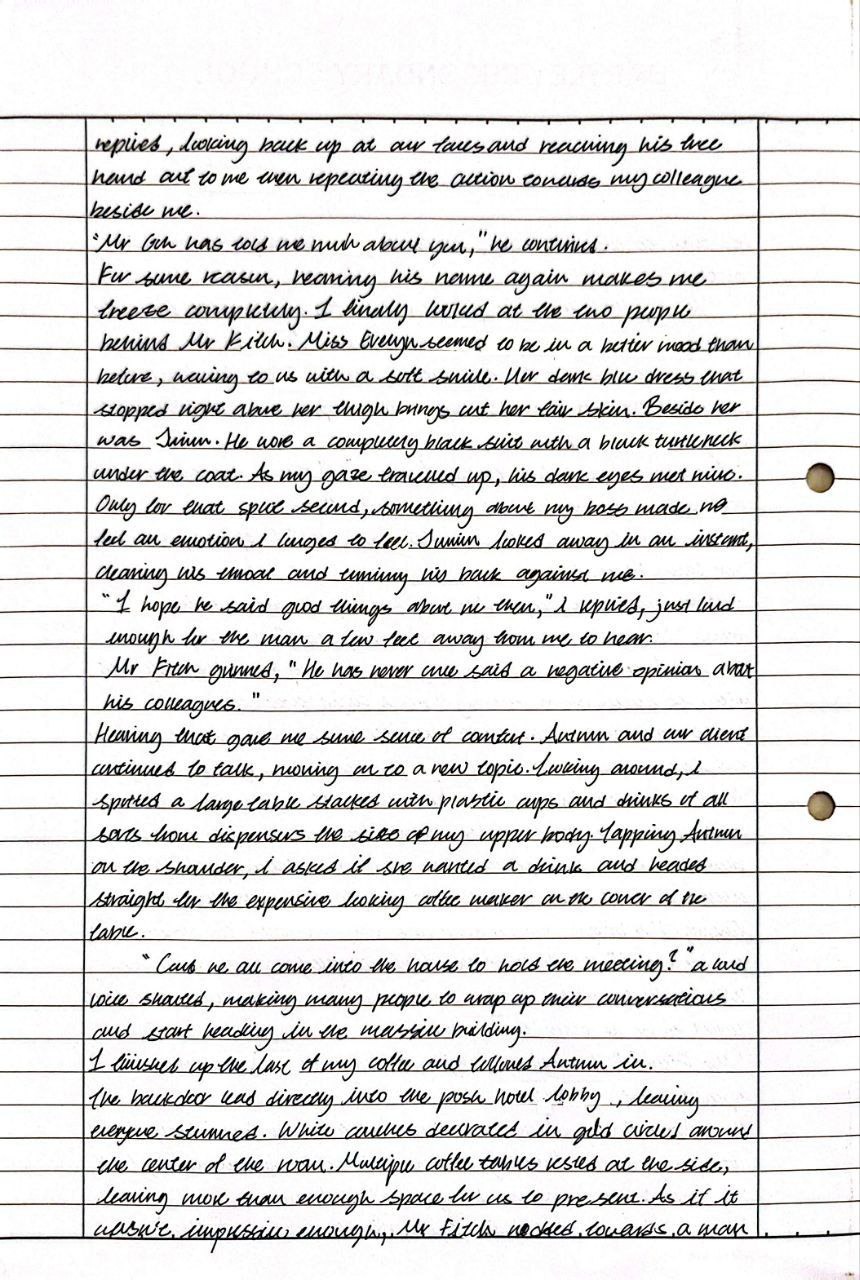 replied, looking back up at our faces and reaching his free
hand out to me then repeating the action towards my colleague
beside me.
"Mr Goh has told me much about you," he continues.
For some reason, hearing his name again makes me
freeze completely. I finally looked at the two people
behind Mr Fitch. Miss Evelyn seemed to be in a better mood than
before, waving to us with a soft smile. Her dark blue dress that
stopped right above her thigh brings out her fair skin. Beside her
was Junin. He wore a completely black suit with a black turtleneck
under the coat. As my gaze travelled up, his dark eyes met mine.
Only for that split second, something about my boss made me
feel an emotion I longed to feel. Junin looked away in an instant,
clearing his throat and turning his back against me.
"I hope he said good things about me then," I replied, just loud
enough for the man a few feet away from me to hear.
Mr Fitch grinned, "He has never once said a negative opinion about
his colleagues."
Hearing that gave me some sense of comfort. Autumn and our client
continues to talk, moving on to a new topic. Looking around, I
spotted a large table stacked with plastic cups and drinks of all
sorts from dispensers the size of my upper body. Tapping Autumn
on the shoulder, I asked if she wanted a drink and headed
straight for the expensive looking coffee maker on the corner of the
table.
"Could we all come into the house to hold the meeting?" a loud
voice shouted, making many people to wrap up their conversations
and start heading in the massive building.
I finished up the last of my coffee and followed Autumn in.
The backdoor lead directly into the posh hotel lobby, leaving
everyone stunned. White couches decorated in gold circled around
the center of the room. Multiple coffee tables rested at the side,
leaving more than enough space for us to present. As if it
wasn't impressive enough, Mr Fitch nodded towards a man